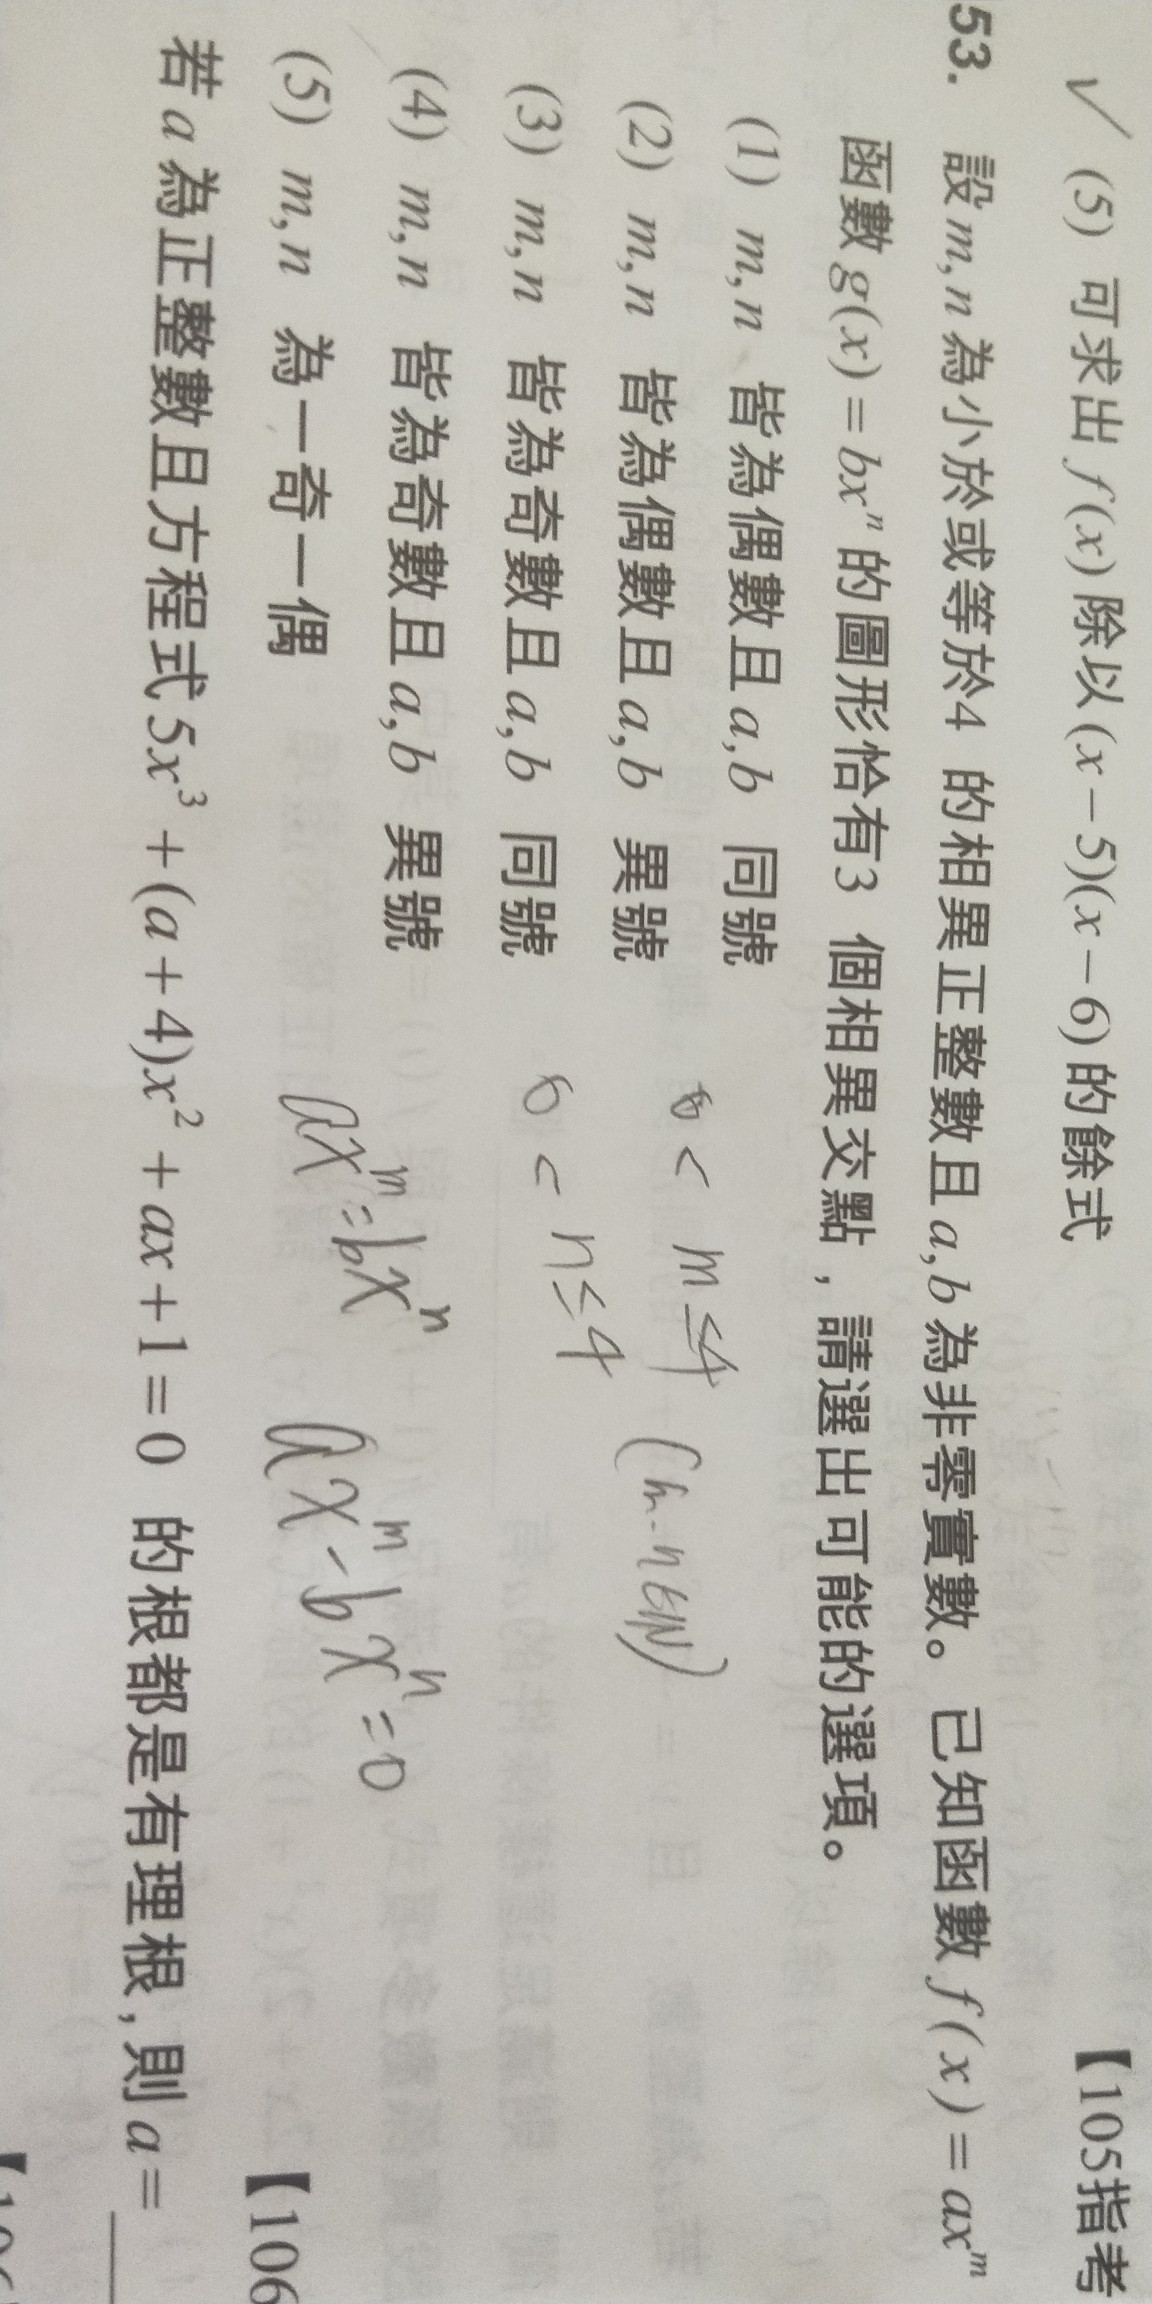 ✓ (5) 可求出 f(x) 除以 (x-5)(x-6) 的餘式
【105指考
53. 設 m,n 為小於或等於4 的相異正整數且 a,b 為非零實數。已知函數 f(x)=axᵐ
函數 g(x)=bxⁿ 的圖形恰有3 個相異交點,請選出可能的選項。
(1) m,n 皆為偶數且 a,b 同號
(2) m,n 皆為偶數且 a,b 異號
(3) m,n 皆為奇數且 a,b 同號
(4) m,n 皆為奇數且 a,b 異號
(5) m,n 為一奇一偶
0 < m ≤ 4 (m-n∈N)
0 < n ≤ 4
axᵐ=bxⁿ axᵐ-bxⁿ=0
【106
若 a 為正整數且方程式 5x³+(a+4)x²+ax+1=0 的根都是有理根,則 a=